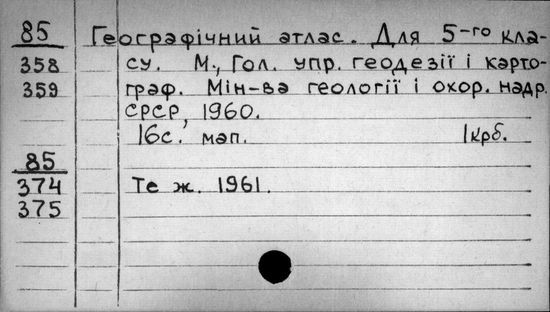 85 Географічний атлас. Для 5-го кла-
358 су. М., Гол. упр. геодезії і карто-
359 граф. Мін-ва геології і охор. надр
СРСР, 1960.
16с. мап. 1крб.
85
374 Те ж. 1961.
375